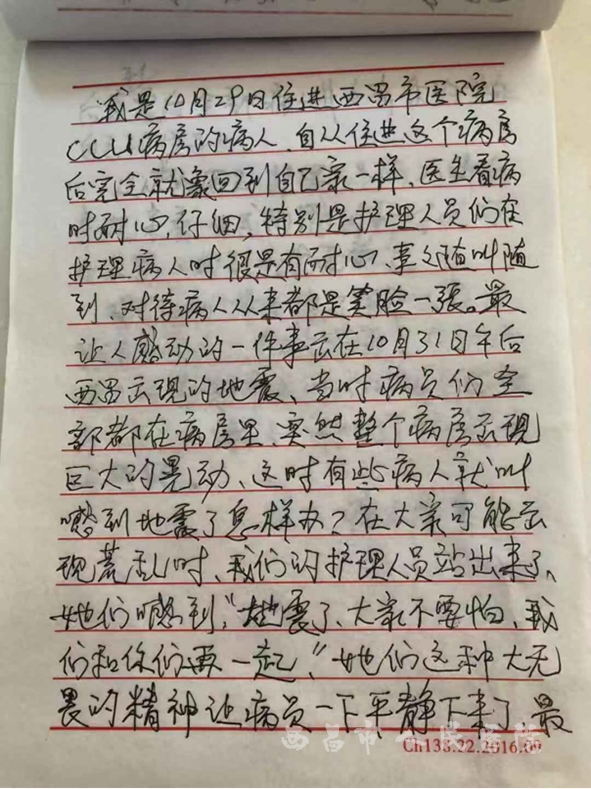 我是10月29日住进西昌市医院
CCU病房的病人、自从住进这个病房
后完全就象回到自己家一样、医生看病
时耐心,仔细,特别是护理人员们在
护理病人时很是有耐心、事之随叫随
到、对待病人从来都是笑脸一张。最
让人感动的一件事云在10月31日午后
西昌云现的地震、当时病员们全
部都在病房里、突然整个病房云现
巨大的晃动、这时有些病人就叫
喊到地震了怎样办?在大家可能云
现荒乱时、我们的护理人员站出来了、
她们喊到,"地震了、大家不要怕、我
们和你们再一起!"她们这种大无
畏的精神让病员一下平静下来了、最
Ch133.22.2016.09
西昌市人民医院